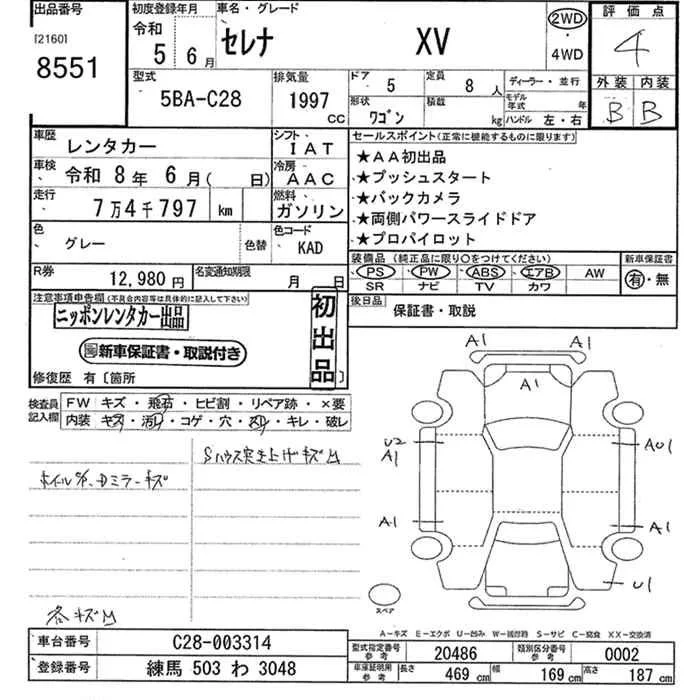 出品番号
[2160]
8551
初度登録年月
令和
5 6月
車名・グレード
セレナ XV
2WD
・
4WD
評価点
4
外装 内装
B B
型式
5BA-C28
排気量
1997
CC
ドア
5
定員
8人
形状
ワゴン
積載
kg
ディーラー・並行
モデル年式 年
ハンドル 左・右
車歴
レンタカー
シフト
IAT
車検
令和 8年 6月( 日)
冷房
AAC
走行
7万4千797 km
燃料
ガソリン
色
グレー
色替
色コード
KAD
R券
12,980円
名変通知期限
月 日
セールスポイント(正常に機能するものに限ります)
★AA初出品
★プッシュスタート
★バックカメラ
★両側パワースライドドア
★プロパイロット
装備品 (純正品に限り○をつけてください)
PS PW ABS エアB AW
SR ナビ TV カワ
新車保証書
有・無
後日品
保証書・取説
注意事項申告欄(不具合内容等は具体的に記入して下さい)
ニッポンレンタカー出品
新車保証書・取説付き
初出品
修復歴 有〔箇所 〕
検査員記入欄
FW キズ・飛石・ヒビ割・リペア跡・×要
内装 キズ・汚れ・コゲ・穴・スレ・キレ・破レ
A1 A1
A1
U2
A1
AU1
A1
A1
U1
A1
スペア
A-キズ E-エクボ U-凹み W-補修跡 S-サビ C-腐食 XX-交換済
車台番号
C28-003314
登録番号
練馬 503 わ 3048
型式指定番号
参考
20486
類別区分番号
参考
0002
車庫証明用
参考
長さ
469 cm
幅
169 cm
高さ
187 cm